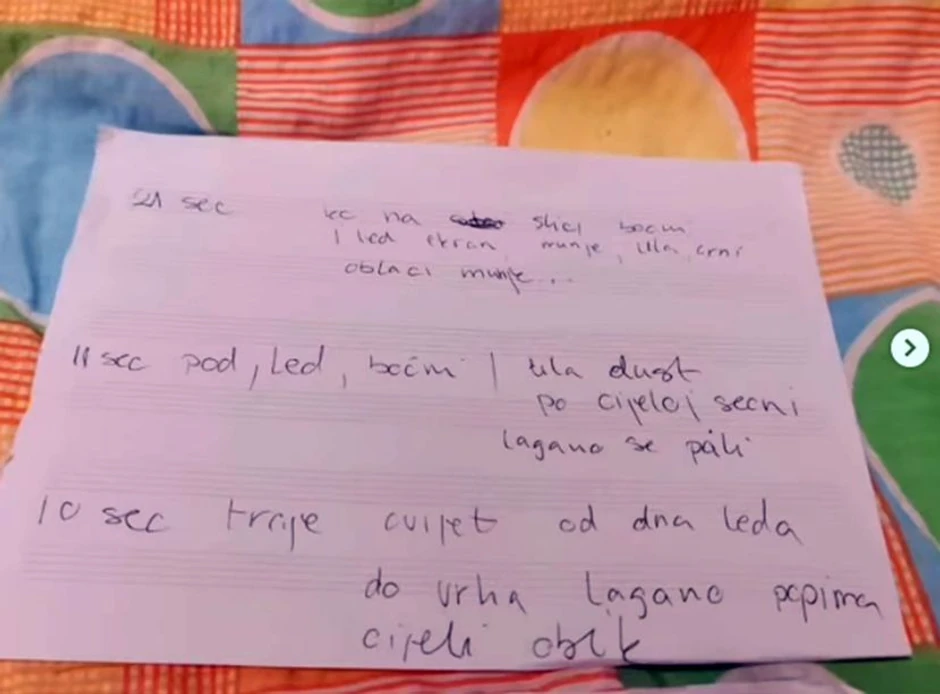 21 sec na slici bočni
i led ekran, munje, ula, crni
oblaci munje...
11 sec pod, led, bočni | ula dust
po cijeloj sceni
lagano se pali
10 sec traje cvijet od dna leda
do vrha lagano popima
cijeli oblik